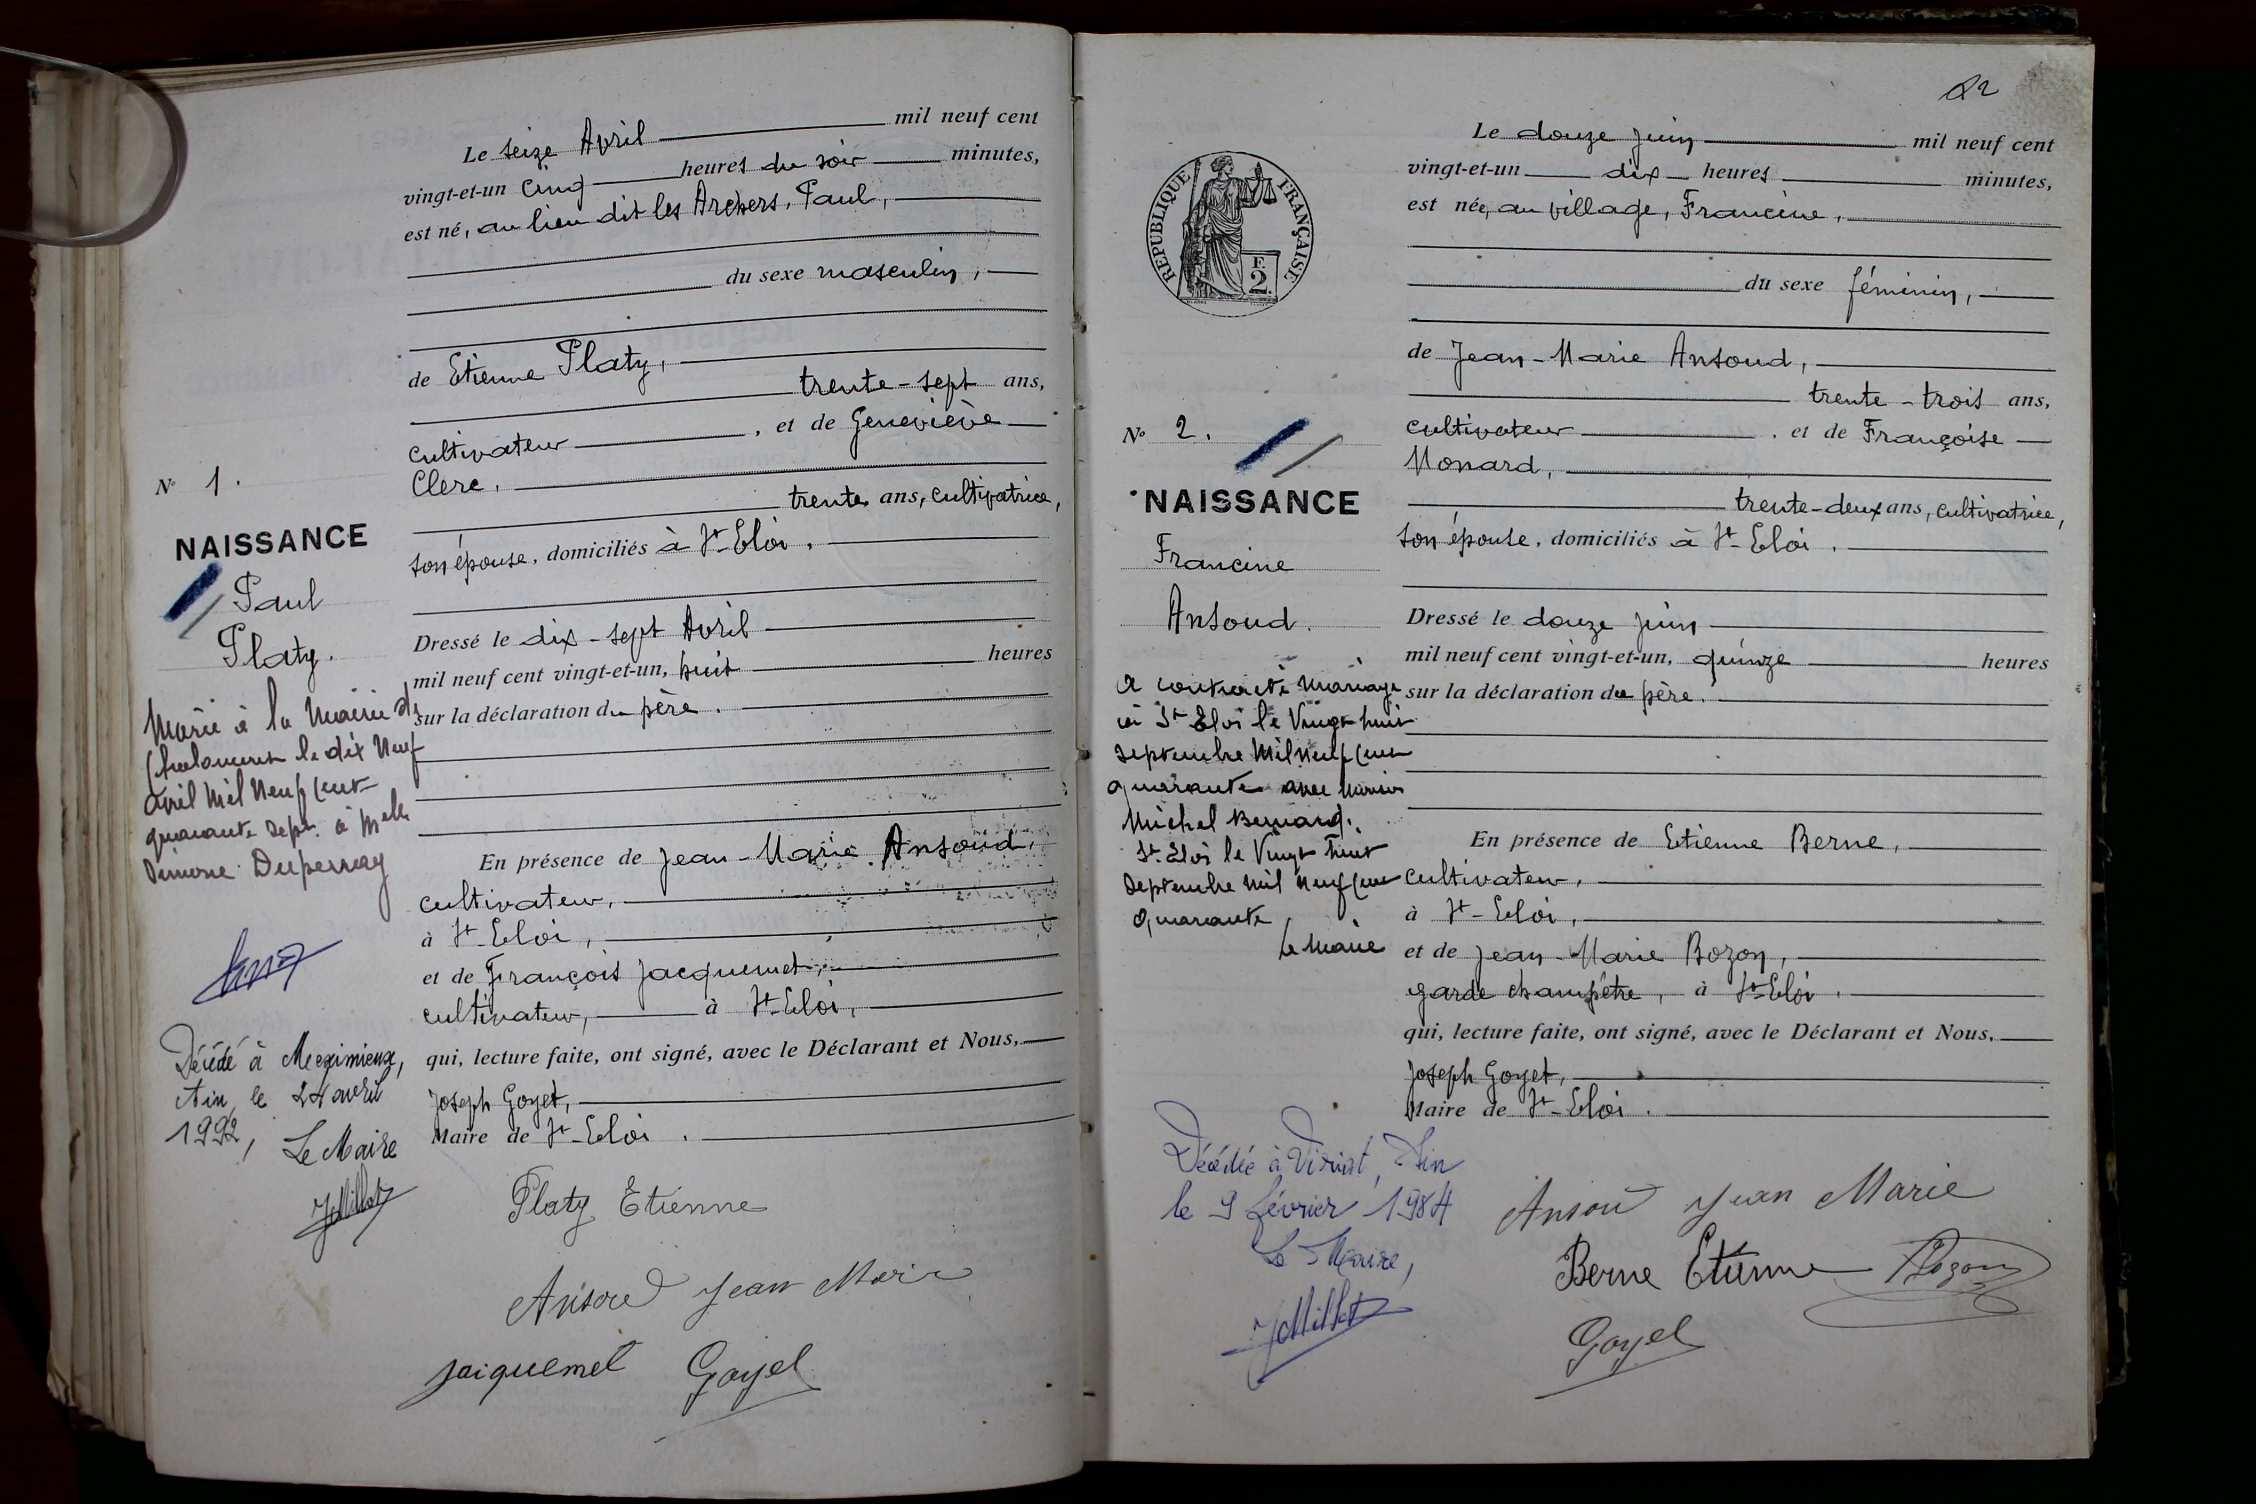 Le seize Avril mil neuf cent
vingt-et-un cinq heures du soir minutes,
est né, au lieu dit les Archers, Paul,
du sexe masculin,
de Etienne Platy,
trente-sept ans,
cultivateur, et de Geneviève
Clerc,
trente ans, cultivatrice,
son épouse, domiciliés à St-Eloi,
Dressé le dix-sept Avril
mil neuf cent vingt-et-un, huit heures
sur la déclaration du père.
En présence de Jean-Marie Ansoud,
cultivateur,
à St-Eloi,
et de François Jacquemet,
cultivateur, à St-Eloi,
qui, lecture faite, ont signé, avec le Déclarant et Nous,
Joseph Goyet,
Maire de St-Eloi.
Platy Etienne
Ansoud Jean Marie
Jaiquemet Goyet
No 1.
NAISSANCE
Paul
Platy.
Marié à la Mairie de
le dix Neuf
avril Mil Neuf Cent
quarante sept à Melle
Simone Duperray
Décédé à Meximieux,
Ain, le 24 avril
1992, Le Maire
JMillet
22
Le douze Juin mil neuf cent
vingt-et-un dix heures minutes,
est née, au village, Francine,
du sexe féminin,
de Jean-Marie Ansoud,
trente-trois ans,
cultivateur, et de Françoise
Monard,
trente-deux ans, cultivatrice,
son épouse, domiciliés à St-Eloi.
Dressé le douze Juin
mil neuf cent vingt-et-un, quinze heures
sur la déclaration du père.
En présence de Etienne Berne,
cultivateur,
à St-Eloi,
et de Jean-Marie Bozon,
garde champêtre, à St-Eloi.
qui, lecture faite, ont signé, avec le Déclarant et Nous,
Joseph Goyet,
Maire de St-Eloi.
Ansoud Jean Marie
Berne Etienne Bozon
Goyet
RÉPUBLIQUE FRANÇAISE
F.
2.
No 2.
NAISSANCE
Francine
Ansoud.
a contracté Mariage
à St Eloi le Vingt huit
septembre Mil Neuf Cent
quarante avec Marius
Michel Bernard.
St Eloi le Vingt huit
Septembre Mil Neuf Cent
quarante
Le Maire
Décédée à Viriat, Ain
le 9 février 1984
Le Maire,
JMillet